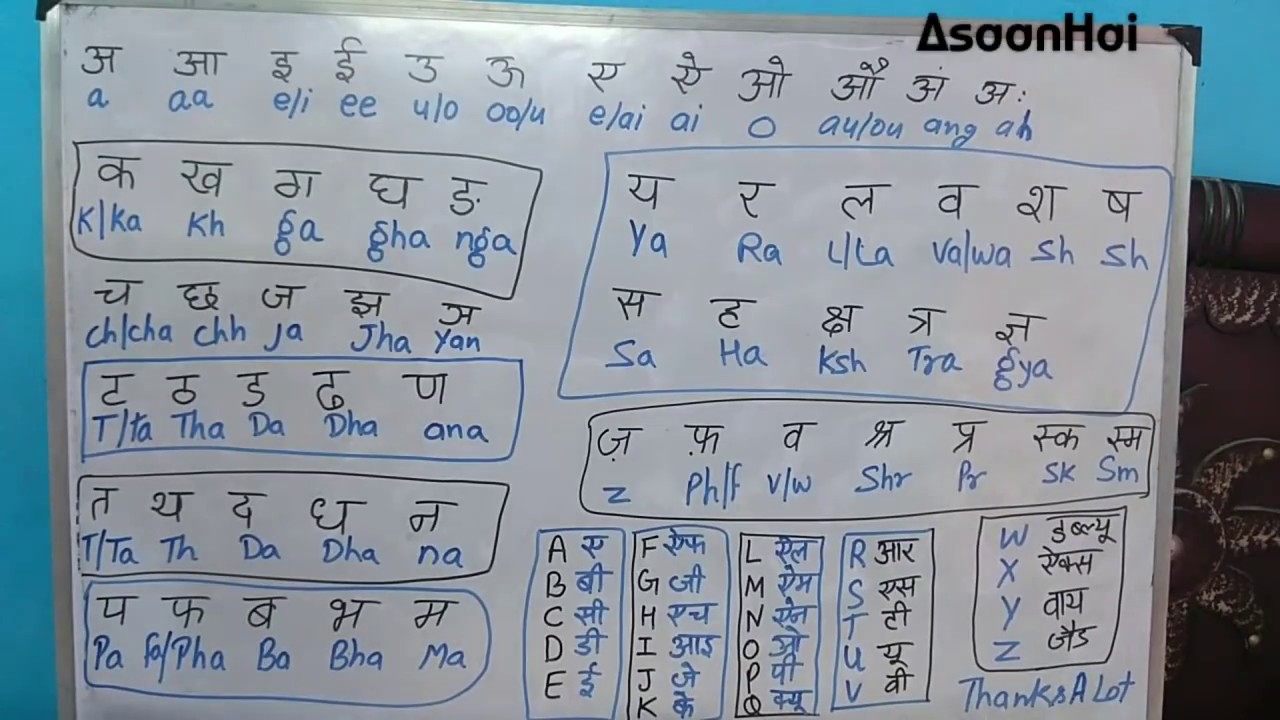 AsaanHai
अ आ इ ई उ ऊ ए ऐ ओ औ अं अः
a aa e/i ee u/o oo/u e/ai ai o au/ou ang ah
क ख ग घ ङ
K/Ka Kh ga gha nga
च छ ज झ ञ
ch/cha chh Ja Jha Yan
ट ठ ड ढ ण
T/ta Tha Da Dha ana
त थ द ध न
T/Ta Th Da Dha na
प फ ब भ म
Pa fa/Pha Ba Bha Ma
य र ल व श ष
Ya Ra L/La Va/wa Sh Sh
स ह क्ष त्र ज्ञ
Sa Ha Ksh Tra gya
ज़ फ़ व श्र प्र स्क स्म
z Ph/f v/w Shr Pr SK Sm
A ए
B बी
C सी
D डी
E ई
F ऐफ
G जी
H एच
I आइ
J जे
K के
L ऐल
M ऐम
N ऐन
O ओ
P पी
Q क्यू
R आर
S एस
T टी
U यू
V वी
W डब्ल्यू
X ऐक्स
Y वाय
Z जैड
Thanks A Lot